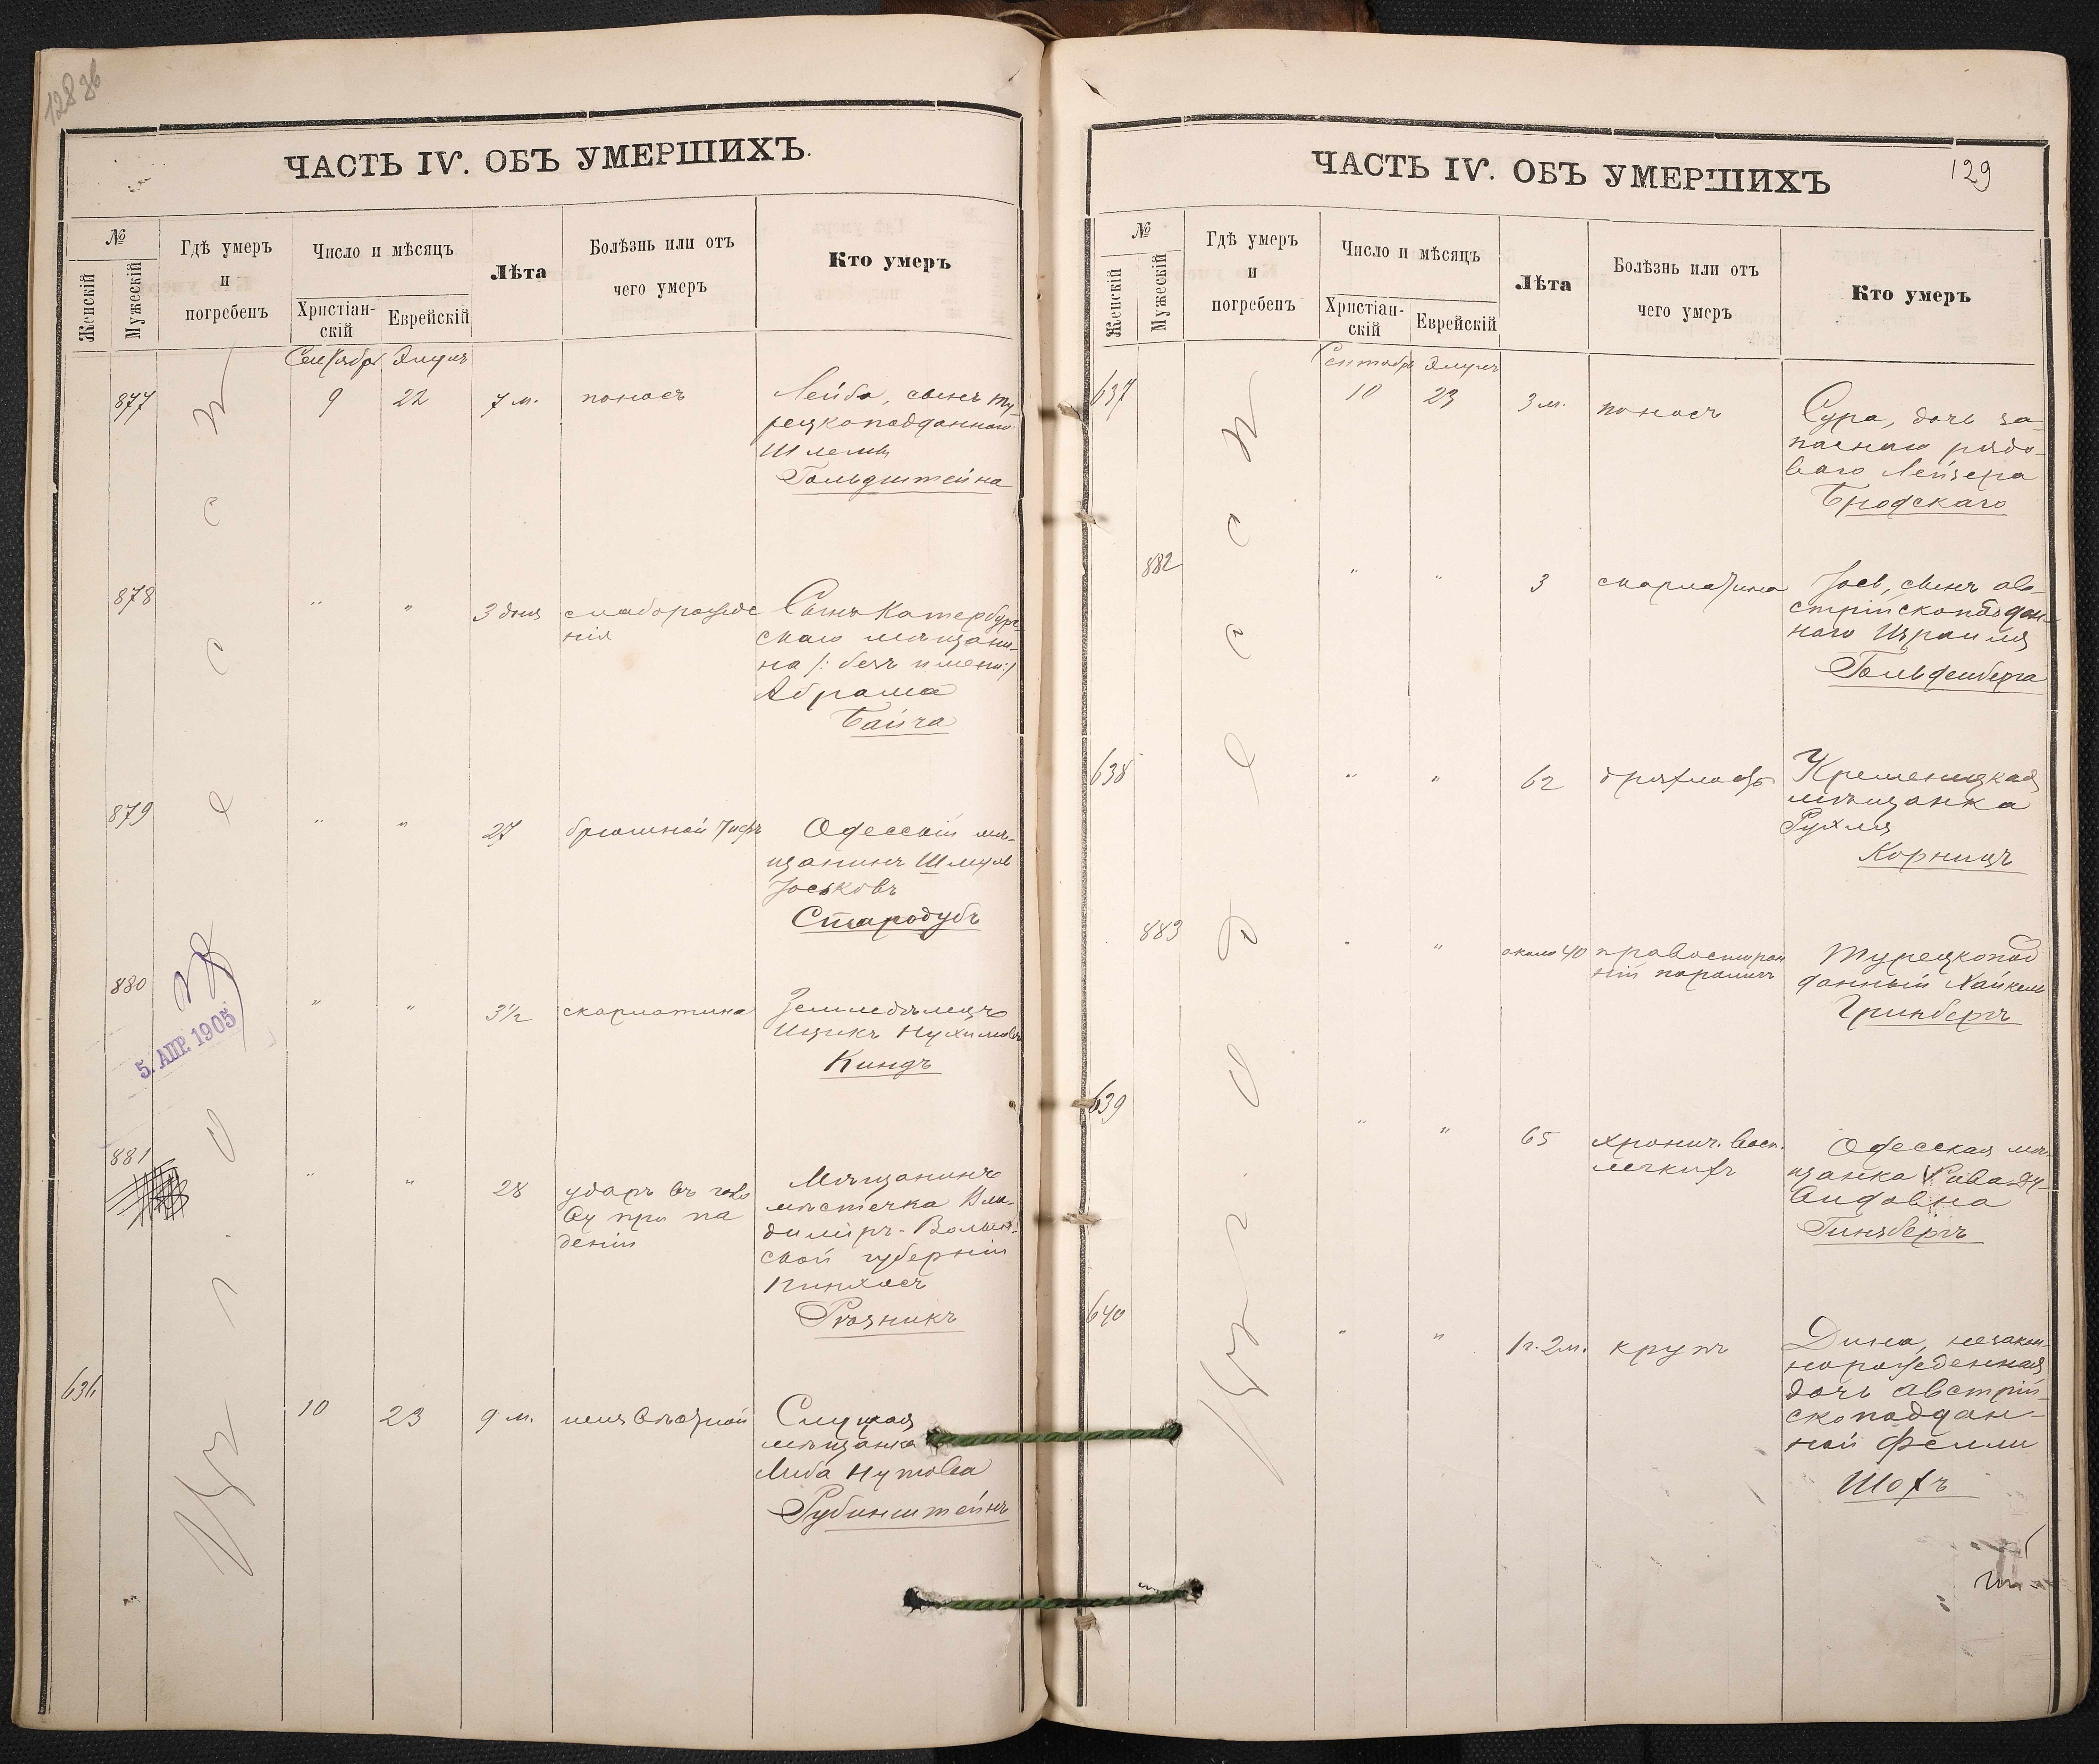 128 зв
ЧАСТЬ IV. ОБЪ УМЕРШИХЪ.
№
Женскій
Мужескій
Гдѣ умеръ
и
погребенъ
Число и мѣсяцъ
Христіан-
скій
Еврейскій
Лѣта
Болѣзнь или отъ
чего умеръ
Кто умеръ
Сентябрь Элулъ
877
9
22
7 м.
поносъ
Лейба, сынъ ту-
рецкоподданнаго
Шлемы
Гольдштейна
878
"
"
3 дня
слаборожде
нія
Сынъ Катербург-
скаго мѣщани-
на /: безъ имени :/
Абрама
879
"
"
27
брюшной тифъ
Одесскій мѣ-
щанинъ Шмуль
Іоськовъ
Стародубъ
880
"
"
3½
скарлатина
Земледѣлецъ
Ицикъ Нухимовъ
Киндъ
5. АПР. 1905
881
"
"
28
ударъ въ голо
ву при па
деніи
Мѣщанинъ
мѣстечка Вла-
диміръ-Волын-
ской губерніи
Пинхасъ
Рѣзникъ
636
10
23
9 м.
Слуцкая
мѣщанка
Либа Нутова
Рубинштейнъ
Одесса
ЧАСТЬ IV. ОБЪ УМЕРШИХЪ
129
№
Женскій
Мужескій
Гдѣ умеръ
и
погребенъ
Число и мѣсяцъ
Христіан-
скій
Еврейскій
Лѣта
Болѣзнь или отъ
чего умеръ
Кто умеръ
Сентябрь Элулъ
637
10
23
3 м.
поносъ
Сура, дочь за-
паснаго рядо-
ваго Лейзера
Бродскаго
882
"
"
3
скарлатина
Іосъ, сынъ ав-
стрійскоподдан-
наго Израиля
Гольденберга
638
"
"
62
дряхлость
Кременецкая
мѣщанка
Рухля
Корницъ
883
"
"
около 40
правосторон
ній параличъ
Турецкопод
данный Хайкель
Гринбергъ
639
"
"
65
хронич. восп.
легкихъ
Одесская мѣ-
щанка Рива Ду-
видовна
Гинзбергъ
640
"
"
1 г. 2 м.
крупъ
Дина, незакон-
норожденная
дочь австрій-
скоподдан-
ной Фелли
Шохъ
Одесса